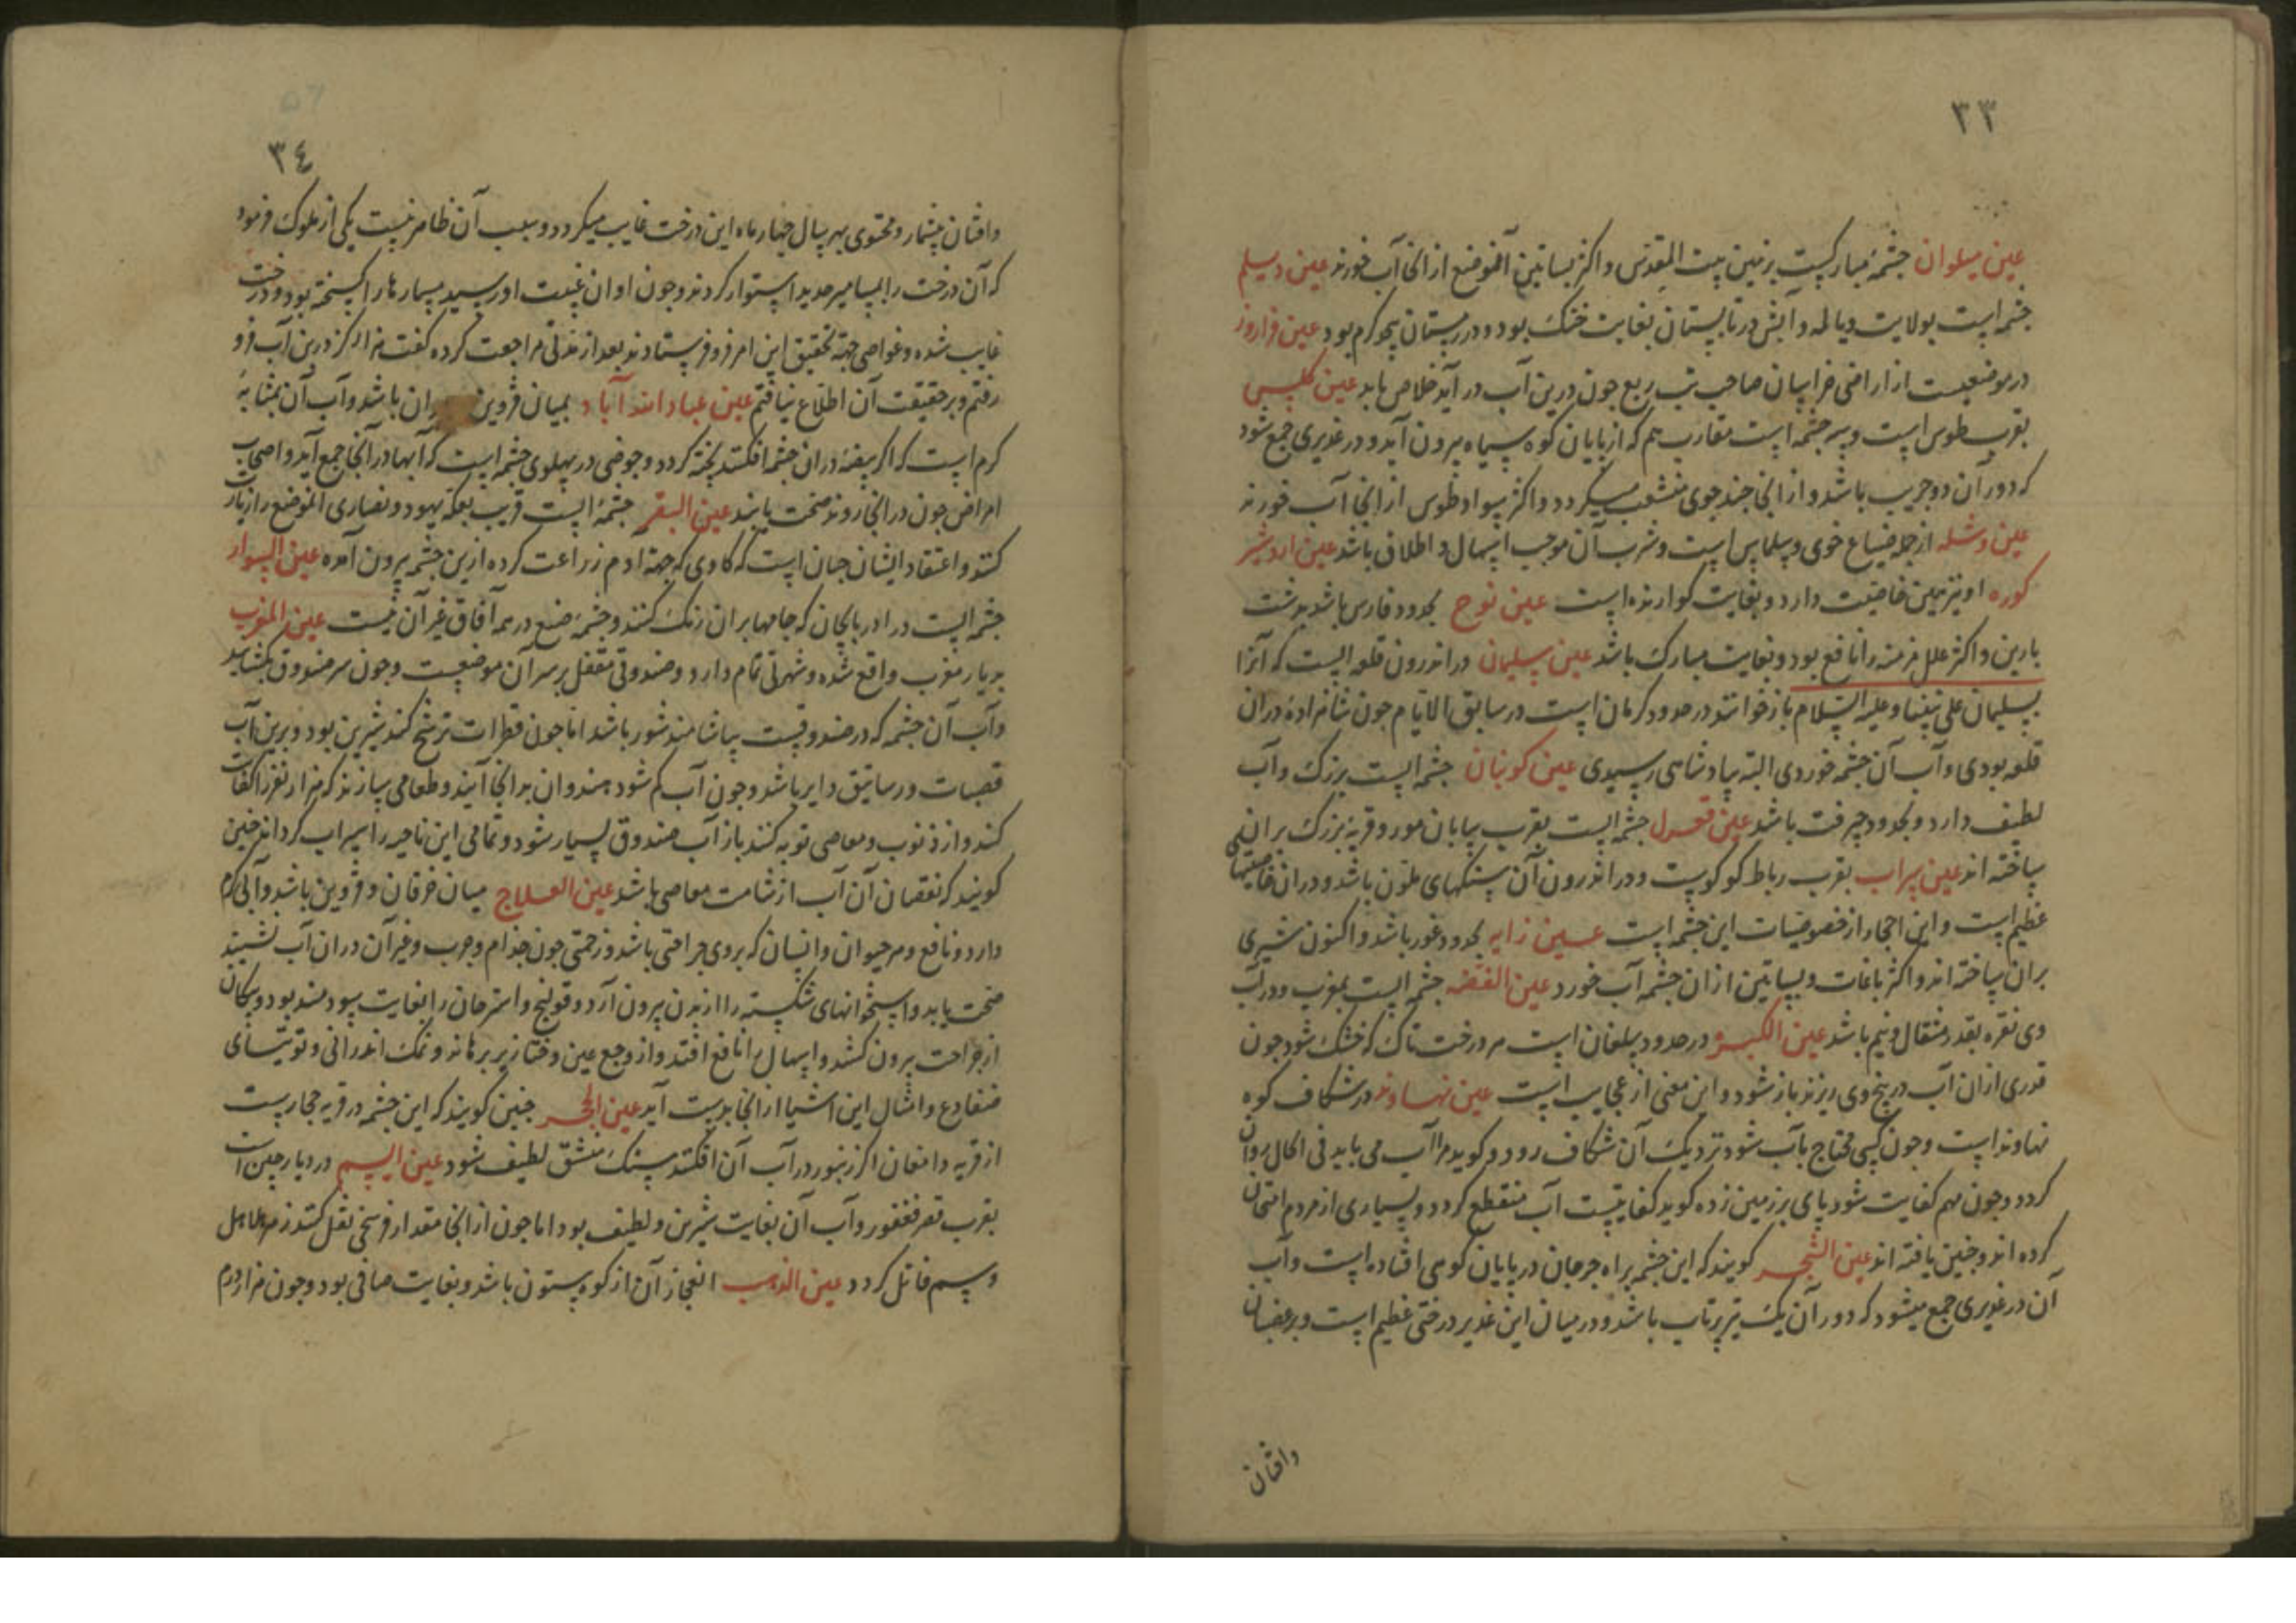 ٣٣
عین سلوان چشمهٔ مبارکست بزمین بیت المقدس و اکثر بساتین آنموضع از انجا آب خورند عین دیلم
چشمه است بولایت دیالمه و آبش در تابستان بغایت خنک بود و در زمستان گرم بود عین فراروز
در موضعیست از اراضی خراسان صاحب تب ربع چون درین آب در آید خلاص یابد عین کلسب
بقرب طوس است و سه چشمه است متقارب هم که از پایان کوه سیاه بیرون آید و در غدیری جمع شود
که دور آن دو جریب باشد و از انجا چند جوی منشعب میگردد و اکثر سواد طوس از انجا آب خورند
عین وشله از جمله ضیاع خوی و سلماس است و شرب آن موجب اسهال و اطلاق باشد عین اردشیر
کوره او نیز همین خاصیت دارد و بغایت کوارنده است عین نوح بحدود فارس باشد بدشت
بارین و اکثر علل مزمنه را نافع بود و بغایت مبارک باشد عین سلیمان در اندرون قلعه ایست که آنرا
بسلیمان علی نبینا و علیه السلام باز خوانند در حدود کرمان است در سابق الایام چون شاهزاده در ان
قلعه بودی و آب آن چشمه خوردی البته بپادشاهی رسیدی عین کوبنان چشمه ایست بزرک و آب
لطیف دارد و بحدود جیرفت باشد عین قعدل چشمه ایست بقرب بیابان مور و قریهٔ بزرک بر ان
ساخته اند عین سراب بقرب رباط کوکویست و در اندرون آن سنکهای ملون باشد و در ان خاصیتها
عظیم است و این احجار از خصوصیات این چشمه است عین زابه بحدود غور باشد و اکنون شهری
بران ساخته اند و اکثر باغات و بساتین از ان چشمه آب خورد عین الفضه چشمه ایست بمغرب و در آب
وی نقره بقدر مثقال و نیم باشد عین الکبیره در حدود سلغان است هر درخت تاک که خشک شود چون
قدری از ان آب در بیخ وی ریزند باز شود و این معنی از عجایب است عین نهاوند در شکاف کوه
نهاوند است و چون کسی محتاج بآب شود نزدیک آن شکاف رود و کوید مرا آب می باید فی الحال روان
کردد و چون مهم کفایت شود پای بر زمین زده کوید کفایتست آب منقطع کردد و بسیاری از مردم امتحان
کرده اند و چنین یافته اند عین الشجر کویند که این چشمه براه جرجان در پایان کوهی افتاده است و آب
آن در غدیری جمع میشود که دور آن یک تیر پرتاب باشد و در میان این غدیر درختی عظیم است و بر اغصان
وافنان
٣٤
وافنان بیشمار و محتوی بهر سال چهار ماه این درخت غایب میکردد و سبب آن ظاهر نیست یکی از ملوک فرمود
که آن درخت را بمسامیر حدید استوار کردند و چون اوان غیبت او رسید مسمارها را کسیخته بود و درخت
غایب شده و غواصی جهة تحقیق این امر فرو فرستادند بعد از مدتی مراجعت کرده کفت هزار کز درین آب فرو
رفتم و بر حقیقت آن اطلاع نیافتم عین عباد اند آباد بمیان قزوین ان باشد و آب آن بمثابهٔ
کرم است که اکر بیضه در ان چشمه افکنند پخته کردد و حوضی در پهلوی چشمه است که آبها در آنجا جمع آید و اصحاب
امراض چون در انجا روند صحت یابند عین البقر چشمهٔ ایست قریب بعکه یهود و نصاری آنموضع را زیارت
کنند و اعتقاد ایشان چنان است که کاوی که جهة آدم زراعت کرده ازین چشمه بیرون آمده عین السوار
چشمه ایست در ادربایجان که جامها بر ان رنک کنند و چشمهٔ صبغ در همه آفاق غیر آن نیست عین المغرب
بدیار مغرب واقع شده و شهرتی تمام دارد و صندوقی مقفل بر سر آن موضعیست و چون سر صندوق بکشایند
و آب آن چشمه که در صندوقست بیاشامند شور باشد اما چون قطرات ترشح کند شیرین بود و برین آب
قصبات و رساتیق دایر باشد و چون آب کم شود هندوان بدانجا آیند و طعامی سازند که هزار نفر را کفاف
کند و از ذنوب و معاصی توبه کنند باز آب صندوق بسیار شود و تمامی این ناحیه را سیراب کرداند چنین
کویند که نقصان آن آب از شامت معاصی باشد عین العلاج میان خرقان و قزوین باشد و آبی کرم
دارد و نافع و هر حیوان و انسان که بروی جراحتی باشد و زحمتی چون جذام و جرب و غیر آن در ان آب نشیند
صحت یابد و استخوانهای شکسته را از بدن بیرون آرد و قولنج و استرخان را بغایت سودمند بود و پیکان
از جراحت بیرون کشد و اسهال را نافع افتد و از وجع عین و خنازیر برهاند و نمک اندرانی و توتیای
ضفادع و امثال این اشیا از انجا بدست آید عین الحجر چنین کویند که این چشمه در قریه حجارست
از قریه دامغان اکر زنبور در آب آن افکنند سنک منشق لطیف شود عین السم در دیار چین است
بقرب قعر فغفور و آب آن بغایت شیرین و لطیف بود اما چون از انجا مقدار فرسخی نقل کنند زهر هلاهل
و سم قاتل کردد عین الذهب انفجار آن از کوه بیستون باشد و بغایت صافی بود و چون هزار درم